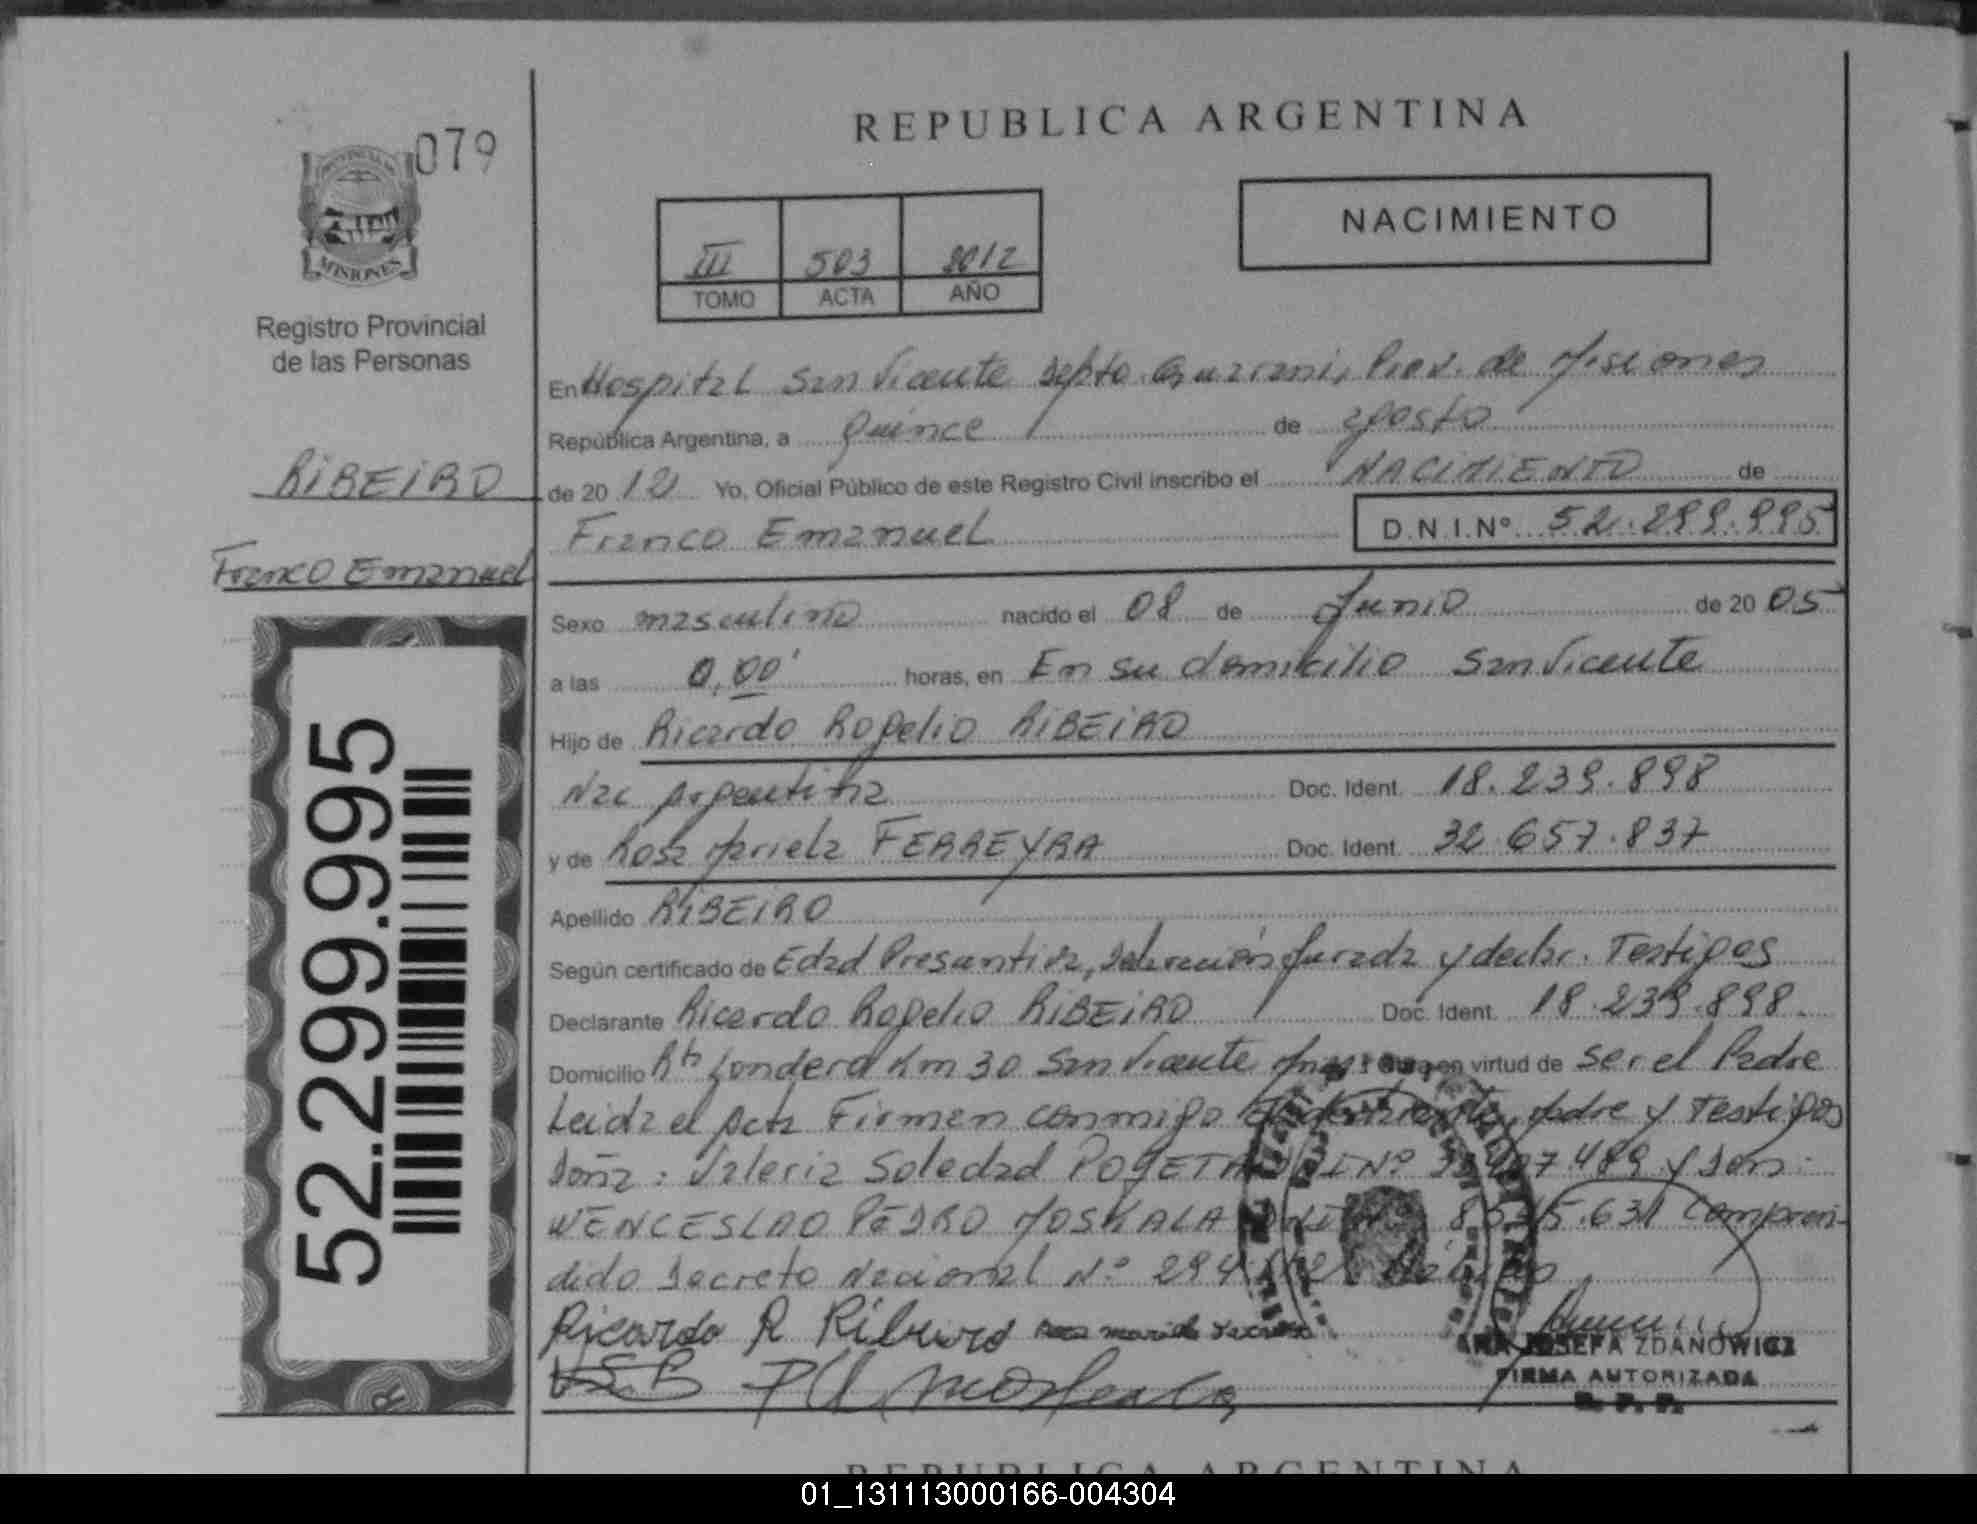 079
PROVINCIA DE
MISIONES
Registro Provincial
de las Personas
RIBEIRO
Franco Emanuel
52.299.995
REPUBLICA ARGENTINA
NACIMIENTO
III 503 2012
TOMO ACTA AÑO
En Hospital San Vicente Depto. Guarani, Prov. de Misiones
República Argentina, a quince de agosto
de 20 12 Yo, Oficial Público de este Registro Civil inscribo el NACIMIENTO de
Franco Emanuel D.N.I.Nº 52.299.995
Sexo masculino nacido el 08 de Junio de 20 05
a las 0,00' horas, en En su domicilio San Vicente
Hijo de Ricardo Rogelio RIBEIRO
Nac Argentina Doc. Ident. 18.239.898
y de Rosa Mariela FERREYRA Doc. Ident. 32.657.837
Apellido RIBEIRO
Según certificado de Edad Presuntiva, Declaración Jurada y declar. Testigos
Declarante Ricardo Rogelio RIBEIRO Doc. Ident. 18.239.898.
Domicilio Km 30 San Vicente en virtud de ser el Padre
Leida el Acta Firman conmigo El declarante, Madre y Testigos
Doña: Valeria Soledad y Don:
WENCESLAO PEDRO MOSKALA compren-
dido Decreto Nacional Nº
Ricardo R Ribeiro
ANA JOSEFA ZDANOWICZ
FIRMA AUTORIZADA
R. P. P.
REPUBLICA ARGENTINA
01_131113000166-004304